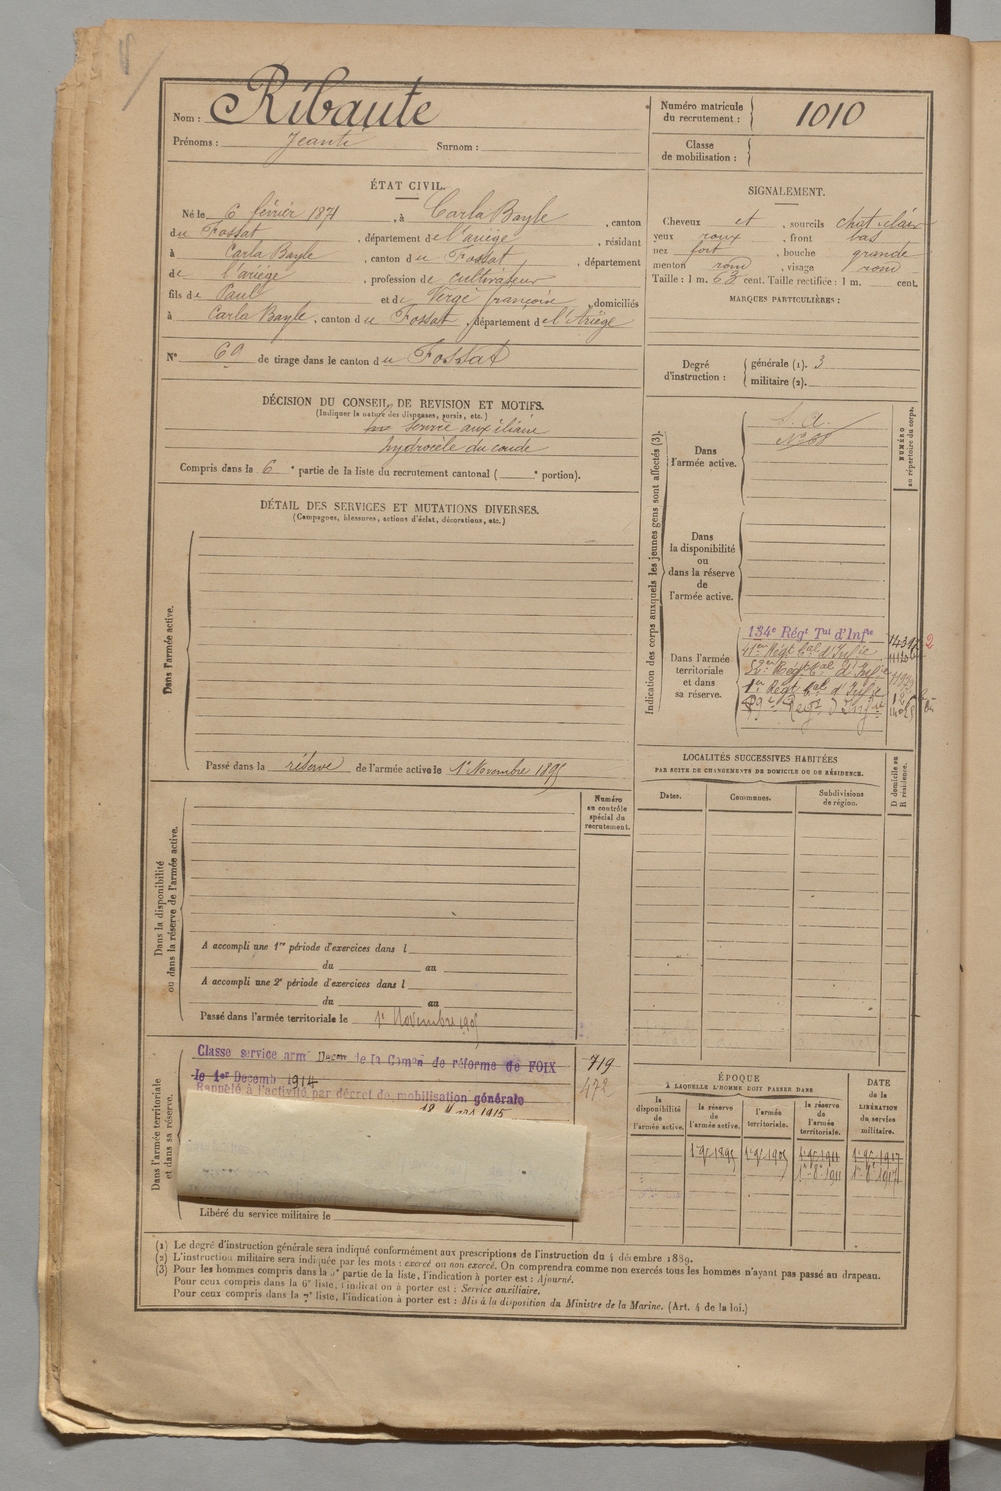 Nom : Ribaute
Prénoms : Jeanti Surnom :
Numéro matricule du recrutement : 1010
Classe de mobilisation :
ÉTAT CIVIL.
Né le 6 février 1871, à Carla Bayle, canton
du Fossat, département de l'ariège, résidant
à Carla Bayle, canton du Fossat, département
de l'ariège, profession de cultivateur
fils de Paul et de Vergé françoise, domiciliés
à Carla Bayle, canton du Fossat, département de l'Ariège
N° 60 de tirage dans le canton du Fossat
SIGNALEMENT.
Cheveux et, sourcils chat clair
yeux roux, front bas
nez fort, bouche grande
menton rond, visage rond
Taille : 1 m. 63 cent. Taille rectifiée : 1 m. cent.
MARQUES PARTICULIÈRES :
Degré d'instruction : générale (1). 3
militaire (2).
DÉCISION DU CONSEIL DE REVISION ET MOTIFS.
(Indiquer la nature des dispenses, sursis, etc.)
service auxiliaire
hydrocèle du coude
Compris dans la 6e partie de la liste du recrutement cantonal ( e portion).
DÉTAIL DES SERVICES ET MUTATIONS DIVERSES.
(Campagnes, blessures, actions d'éclat, décorations, etc.)
Dans l'armée active.
Passé dans la réserve de l'armée active le 1er Novembre 1895
Indication des corps auxquels les jeunes gens sont affectés (3).
NUMÉRO au répertoire du corps.
Dans l'armée active.
S. A.
Dans la disponibilité ou dans la réserve de l'armée active.
Dans l'armée territoriale et dans sa réserve.
134e Régt Tal d'Infie
1er Régt Cal d'Infie
LOCALITÉS SUCCESSIVES HABITÉES
PAR SUITE DE CHANGEMENTS DE DOMICILE OU DE RÉSIDENCE.
Dates. Communes. Subdivisions de région.
D domicile ou R résidence.
Dans la disponibilité ou dans la réserve de l'armée active.
Numéro au contrôle spécial du recrutement.
A accompli une 1re période d'exercices dans l
du au
A accompli une 2e période d'exercices dans l
du au
Passé dans l'armée territoriale le 1er Novembre 1905
Dans l'armée territoriale et dans sa réserve.
Classe service armé Décon de la Comon de réforme de FOIX
le 1er Decemb 1914
Rappelé à l'activité par décret de mobilisation générale
18 Mars 1915
719
472
Libéré du service militaire le
ÉPOQUE
À LAQUELLE L'HOMME DOIT PASSER DANS
la disponibilité de l'armée active.
la réserve de l'armée active.
l'armée territoriale.
la réserve de l'armée territoriale.
DATE de la LIBÉRATION du service militaire.
1er 9e 1895 1er 9e 1905 1er 9e 1911 1er 9e 1917
1er 8e 1911 1er 8e 1917
(1) Le degré d'instruction générale sera indiqué conformément aux prescriptions de l'instruction du 4 décembre 1889.
(2) L'instruction militaire sera indiquée par les mots : exercé ou non exercé. On comprendra comme non exercés tous les hommes n'ayant pas passé au drapeau.
(3) Pour les hommes compris dans la 5e partie de la liste, l'indication à porter est : Ajourné.
Pour ceux compris dans la 6e liste, l'indication à porter est : Service auxiliaire.
Pour ceux compris dans la 7e liste, l'indication à porter est : Mis à la disposition du Ministre de la Marine. (Art. 4 de la loi.)